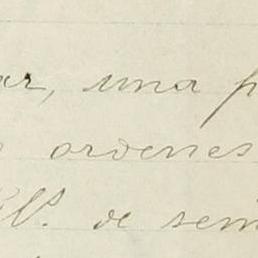 ar, una p
ordenes
de sem